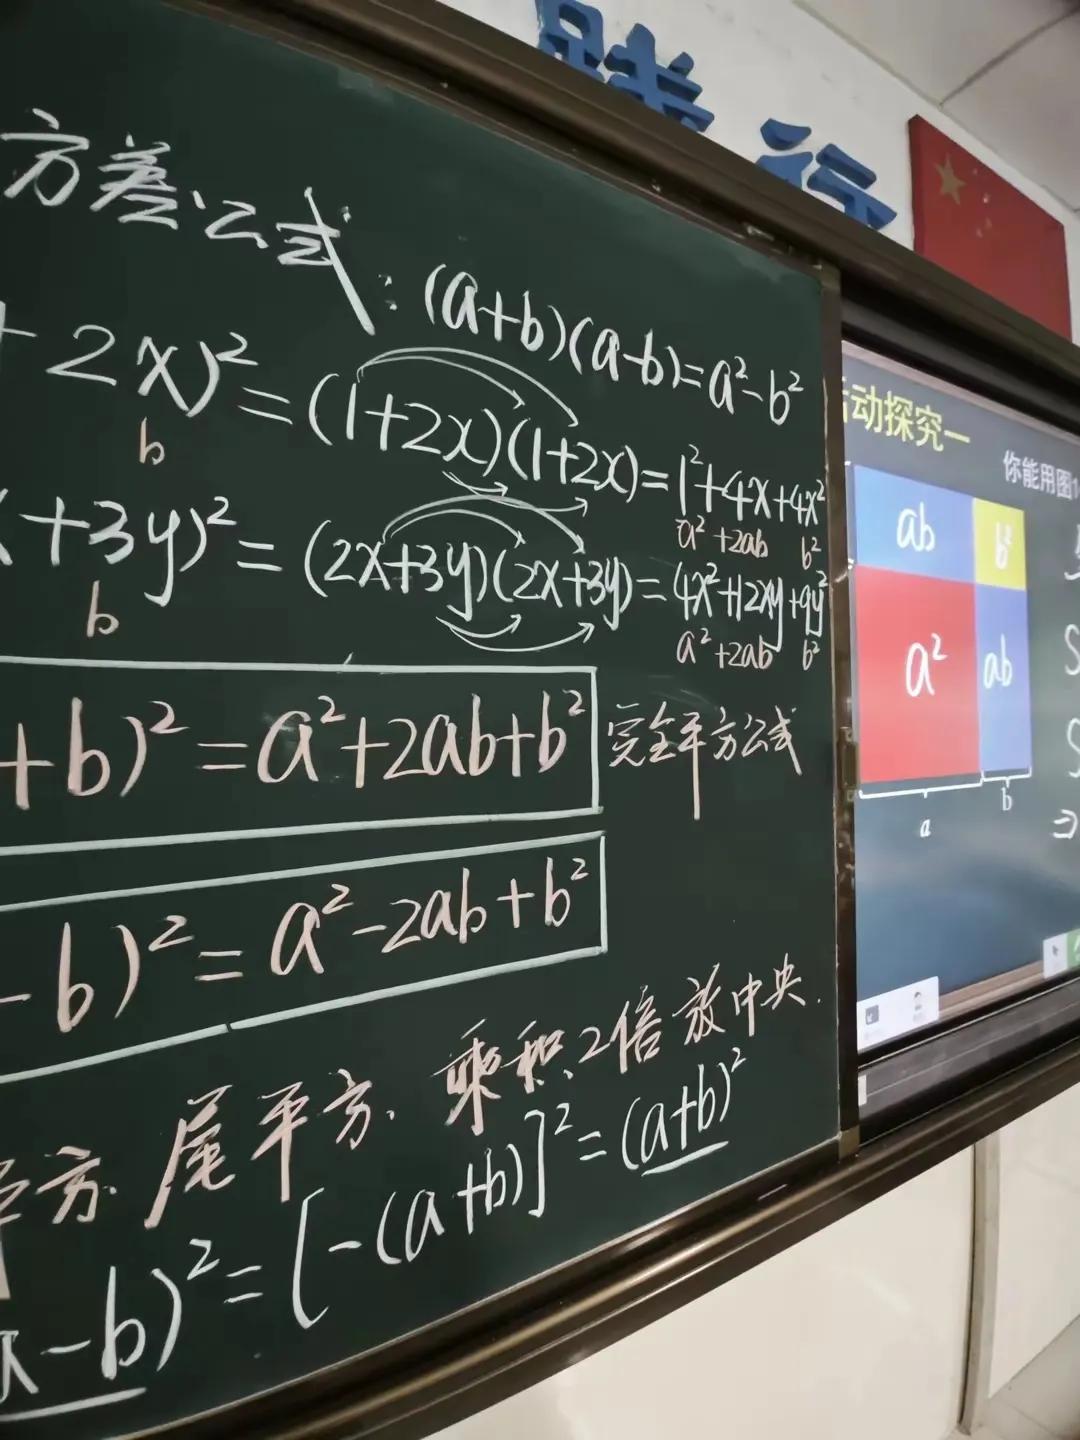 践行
方差公式:(a+b)(a-b)=a²-b²
+2x)²=(1+2x)(1+2x)=1²+4x+4x²
b
a²+2ab b²
x+3y)²=(2x+3y)(2x+3y)=4x²+12xy+9y²
b
a²+2ab b²
+b)²=a²+2ab+b² 完全平方公式
-b)²=a²-2ab+b²
平方.尾平方.乘积2倍放中央.
-b)²=[-(a+b)]²=(a+b)²
活动探究一
你能用图1
ab b²
a² ab
a b
S
S
⇒